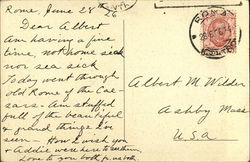 Rome, June 28th
26
Dear Albert
Am having a fine
time, not home sick
nor sea sick
Today went through
old Rome of the Cae-
sars. Am stuffed
full of the beautiful
& grand things I've
seen. How I wish you
& Addie were here
Love to you both
ROMA
Albert M. Wilder
Ashby Mass
U.S.A